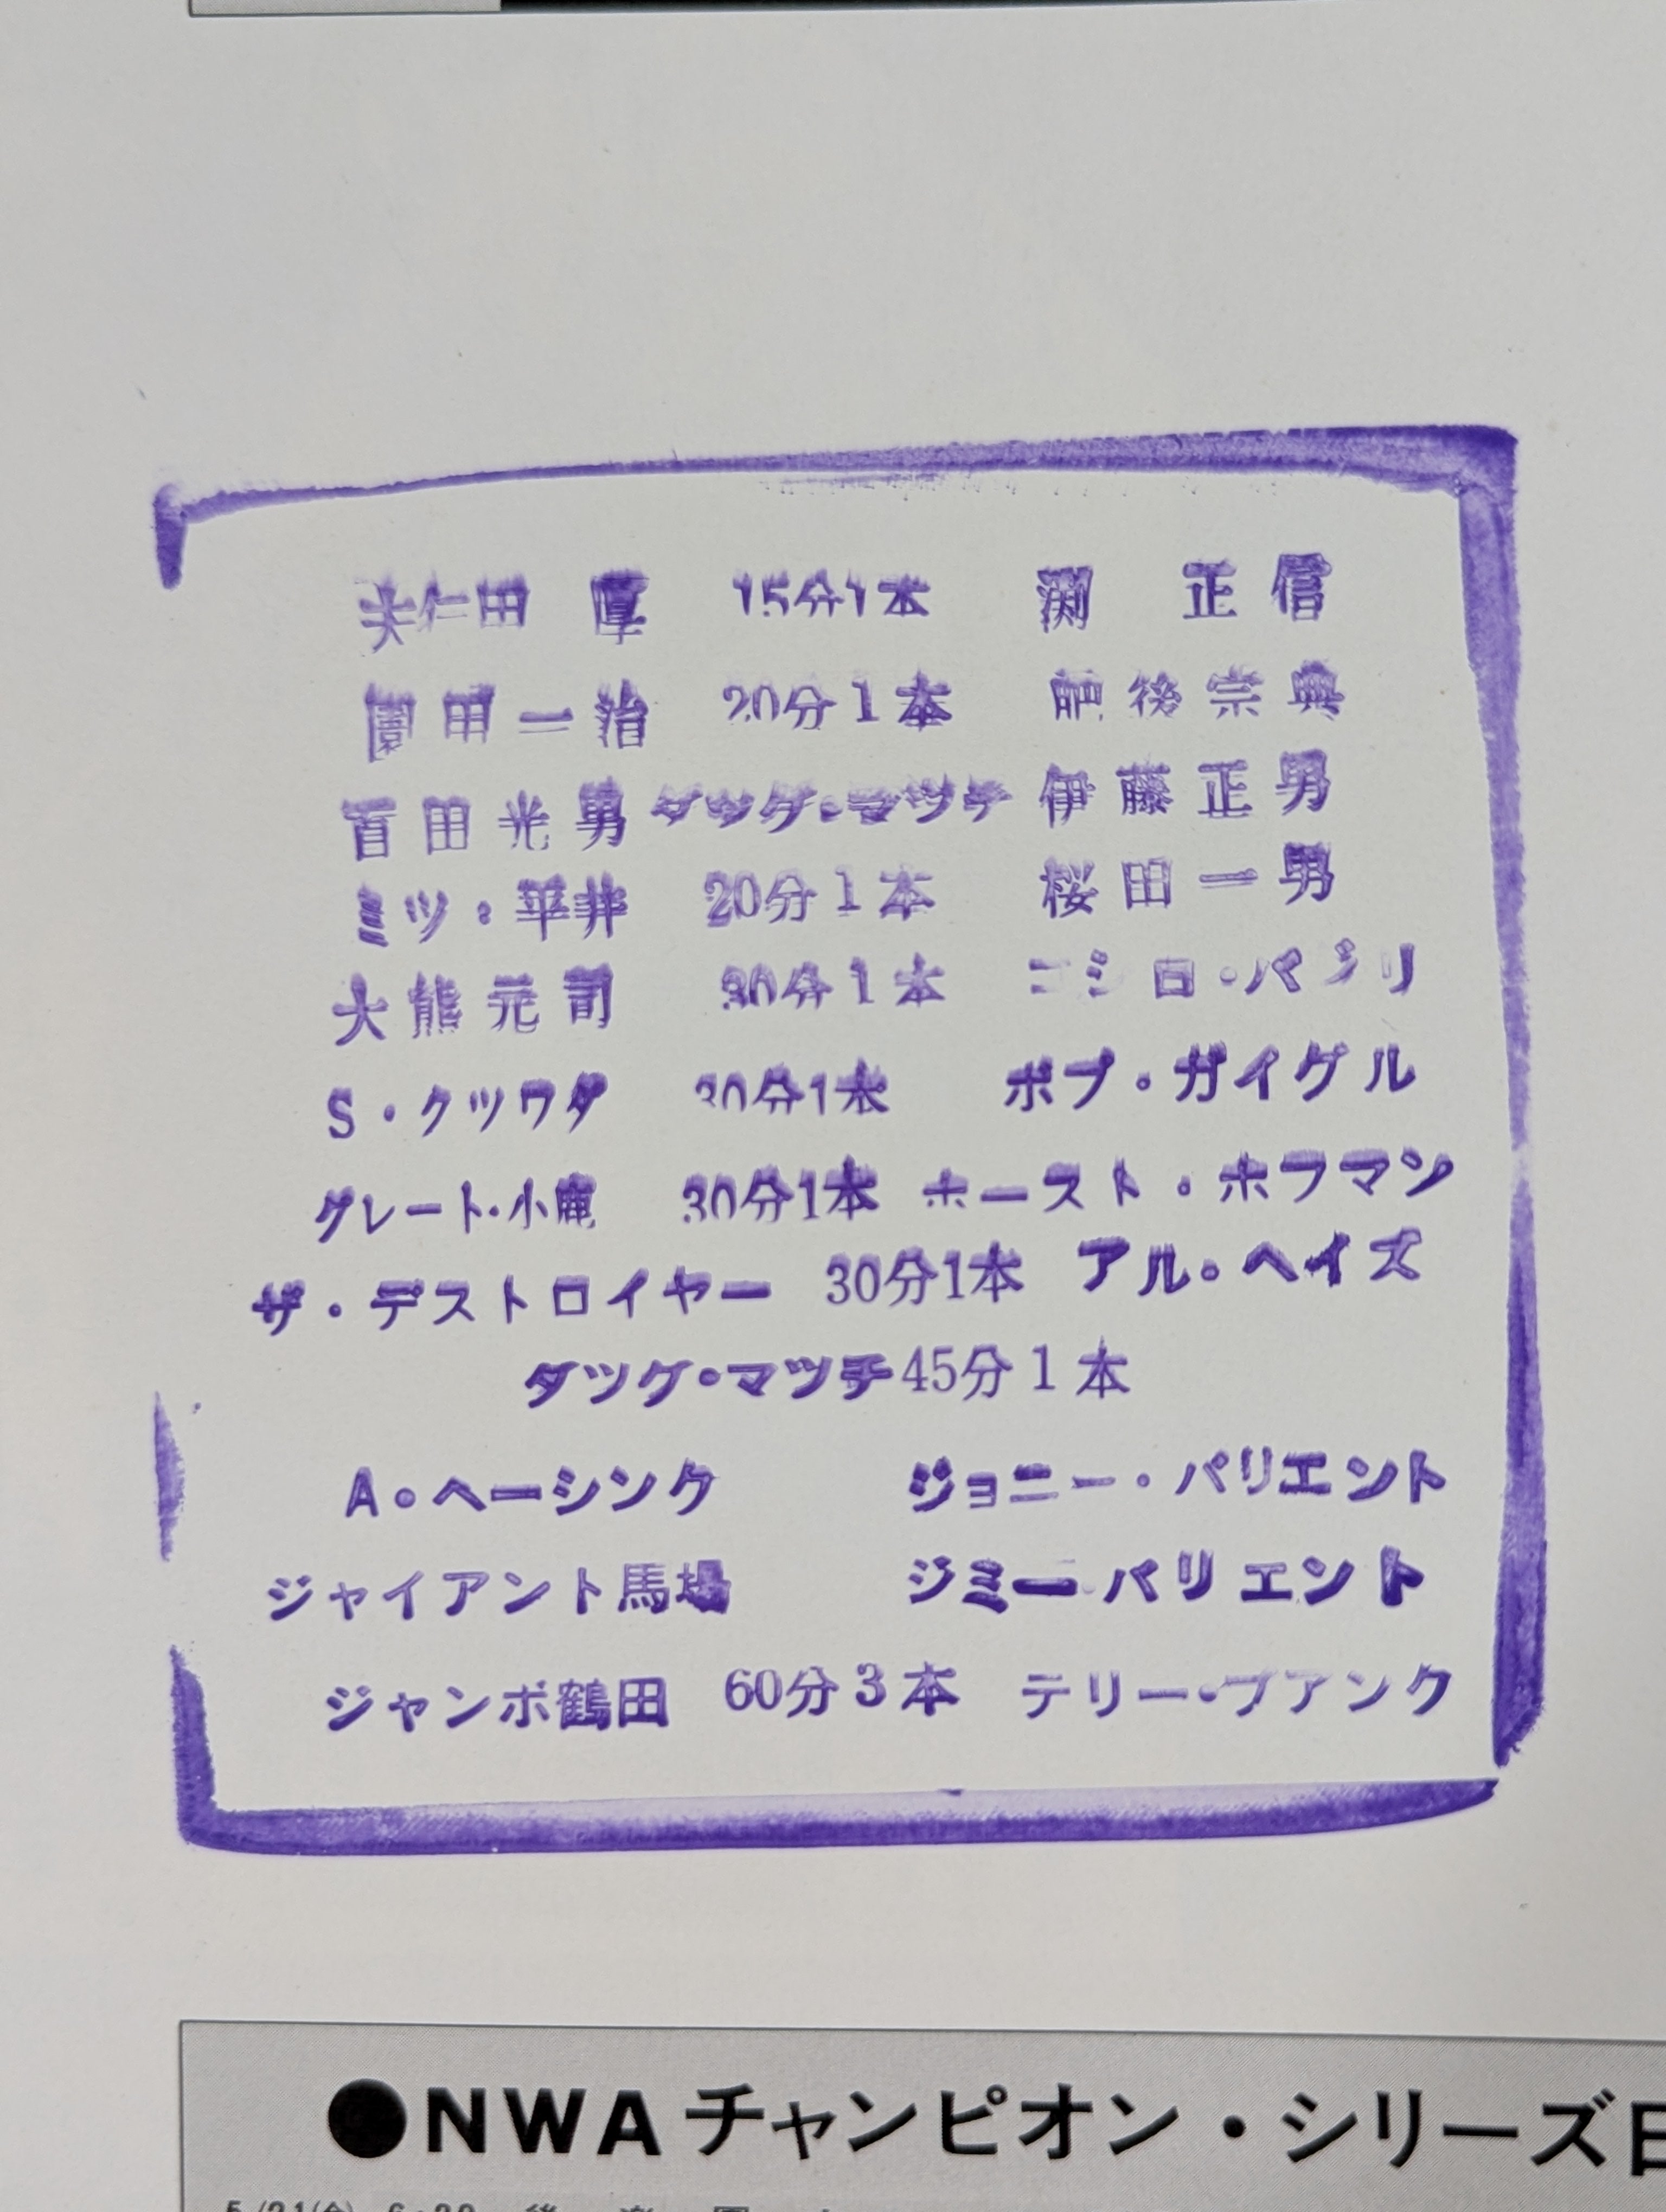 大仁田 厚 15分1本 渕 正信
園田一治 20分1本 肥後宗典
百田光男 タツグ・マツチ 伊藤正男
ミツ・平井 20分1本 桜田一男
大熊元司 30分1本 ニシロ・バジリ
S・クツワダ 30分1本 ボブ・ガイゲル
グレート・小鹿 30分1本 ホースト・ホフマン
ザ・デストロイヤー 30分1本 アル・ヘイズ
タツグ・マツチ45分1本
A・ヘーシンク ジョニー・バリエント
ジャイアント馬場 ジミー・バリエント
ジャンボ鶴田 60分3本 テリー・フアンク
●NWAチャンピオン・シリーズ日
5/21(金) 6:30 後楽園